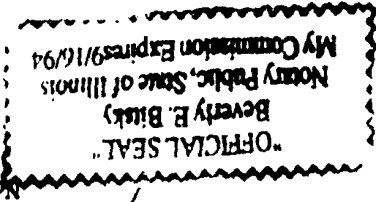 "OFFICIAL SEAL"
Beverly E. Bitsky
Notary Public, State of Illinois
My Commission Expires 9/16/94